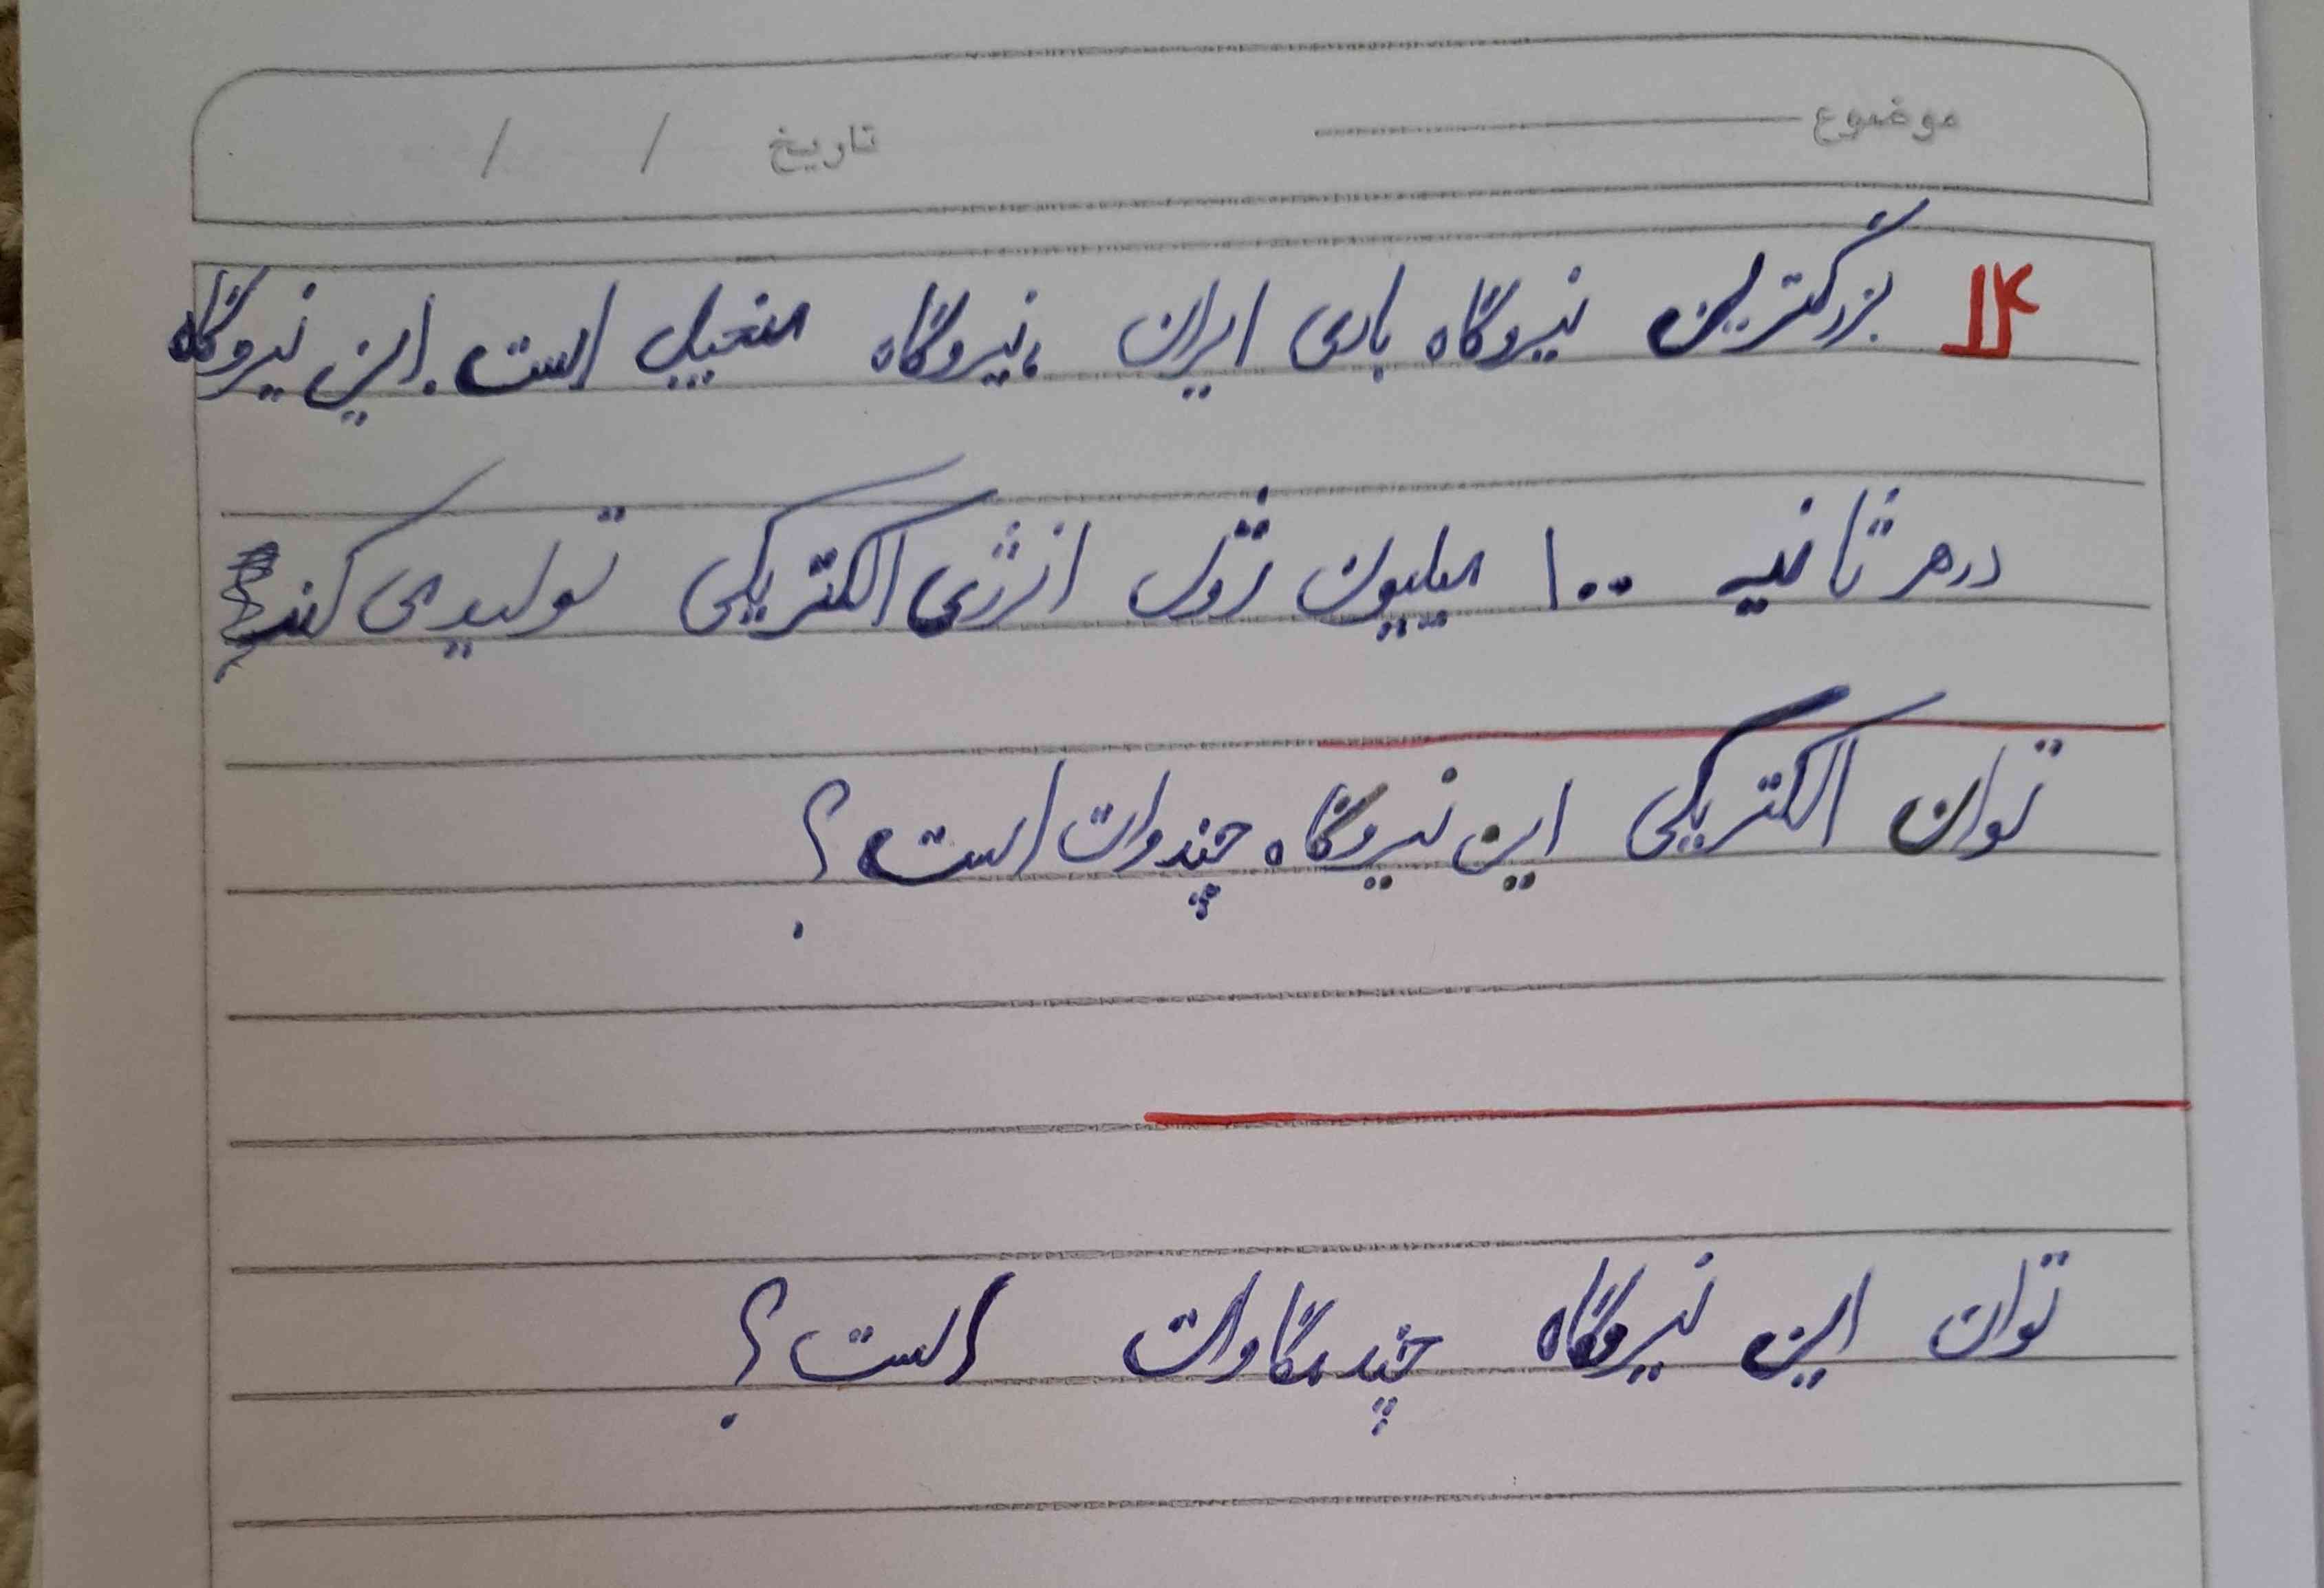 موضوع تاریخ / /
۱۴ بزرگترین نیروگاه بادی ایران، نیروگاه منجیل است. این نیروگاه
در هر ثانیه ۱۰۰ میلیون ژول انرژی الکتریکی تولید می کند
توان الکتریکی این نیروگاه چند وات است؟
توان این نیروگاه چند مگاوات است؟